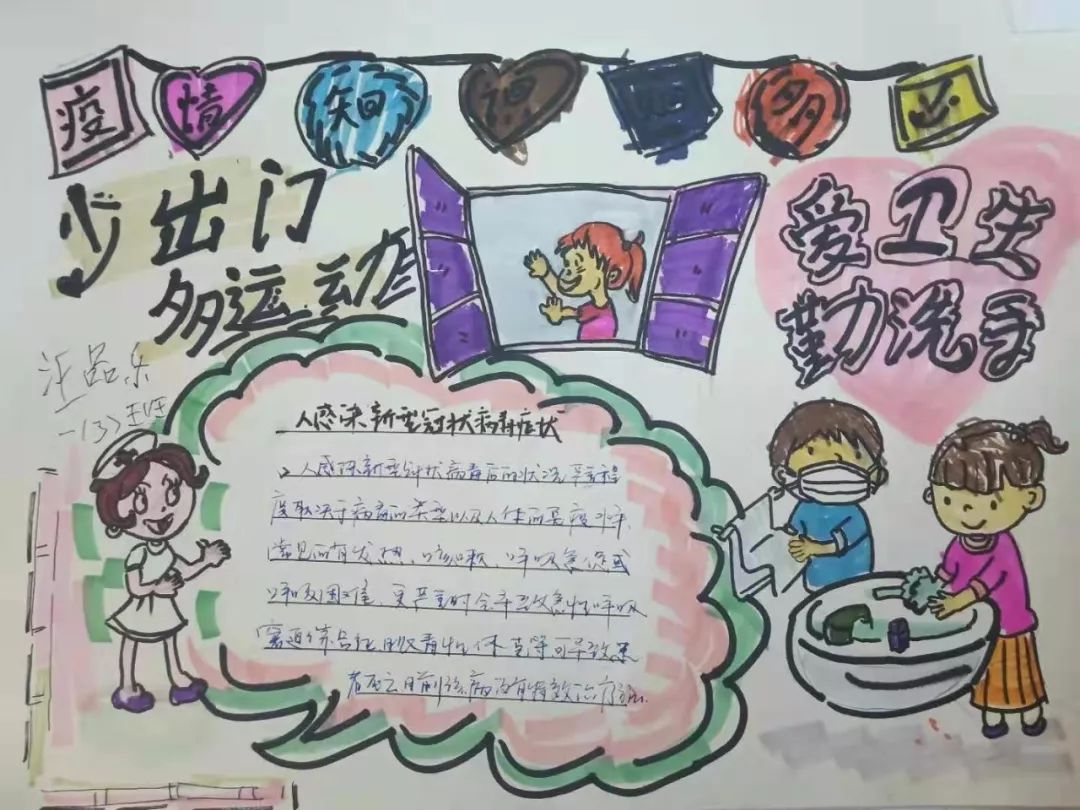 疫情知识多
少出门
多运动
爱卫生
勤洗手
汪品乐
一(3)班
人感染新型冠状病毒症状
人感染新型冠状病毒后的状况严重程
度取决于病毒的类型以及人体的免疫
常见的有发热、咳嗽、呼吸急促或
呼吸困难,更严重时会导致急性呼吸
窘迫综合征
者死亡目前该病没有特效治疗